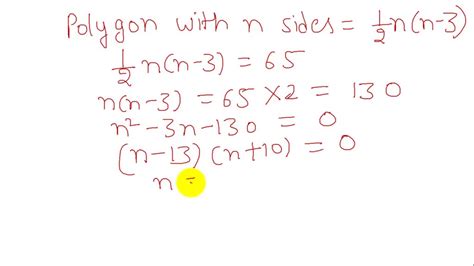 Polygon with n sides = ½n(n-3)
½n(n-3) = 65
n(n-3) = 65 × 2 = 130
n²-3n-130 = 0
(n-13)(n+10) = 0
n =